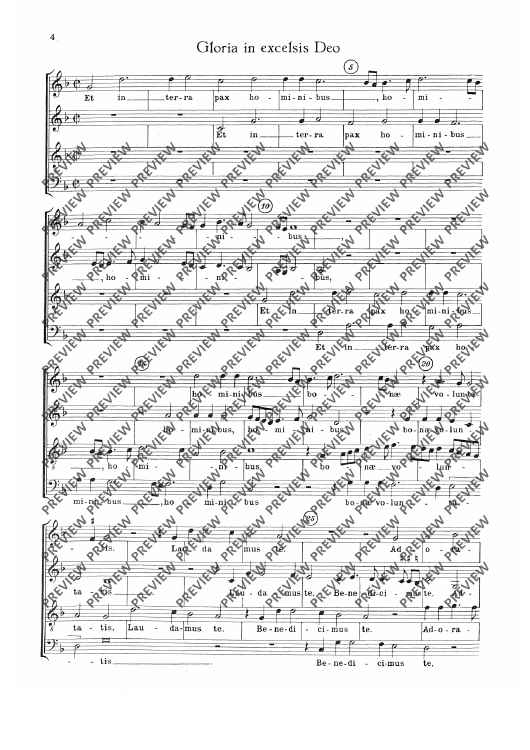 4
Gloria in excelsis Deo
5
Et in ter-ra pax ho-mi-ni-bus, ho-mi-
Et in ter-ra pax ho-mi-ni-bus
10
ni-bus,
, ho-mi-ni-bus,
Et in ter-ra pax ho-mi-ni-bus
Et in ter-ra pax ho-
15
20
ho-mi-ni-bus bo-næ vo-lun-ta-
ho-mi-ni-bus, ho-mi-ni-bus bo-næ vo-lun-
, ho-mi-ni-bus bo-næ vo-lun-
mi-ni-bus, ho-mi-ni-bus bo-næ vo-lun-
25
tis. Lau-da-mus te. Ad-o-ra-
ta-tis. Lau-da-mus te. Be-ne-di-ci-mus te. Ad-
ta-tis. Lau-da-mus te. Be-ne-di-ci-mus te. Ad-o-ra-
-tis Be-ne-di-ci-mus te.
PREVIEW PREVIEW PREVIEW PREVIEW PREVIEW PREVIEW